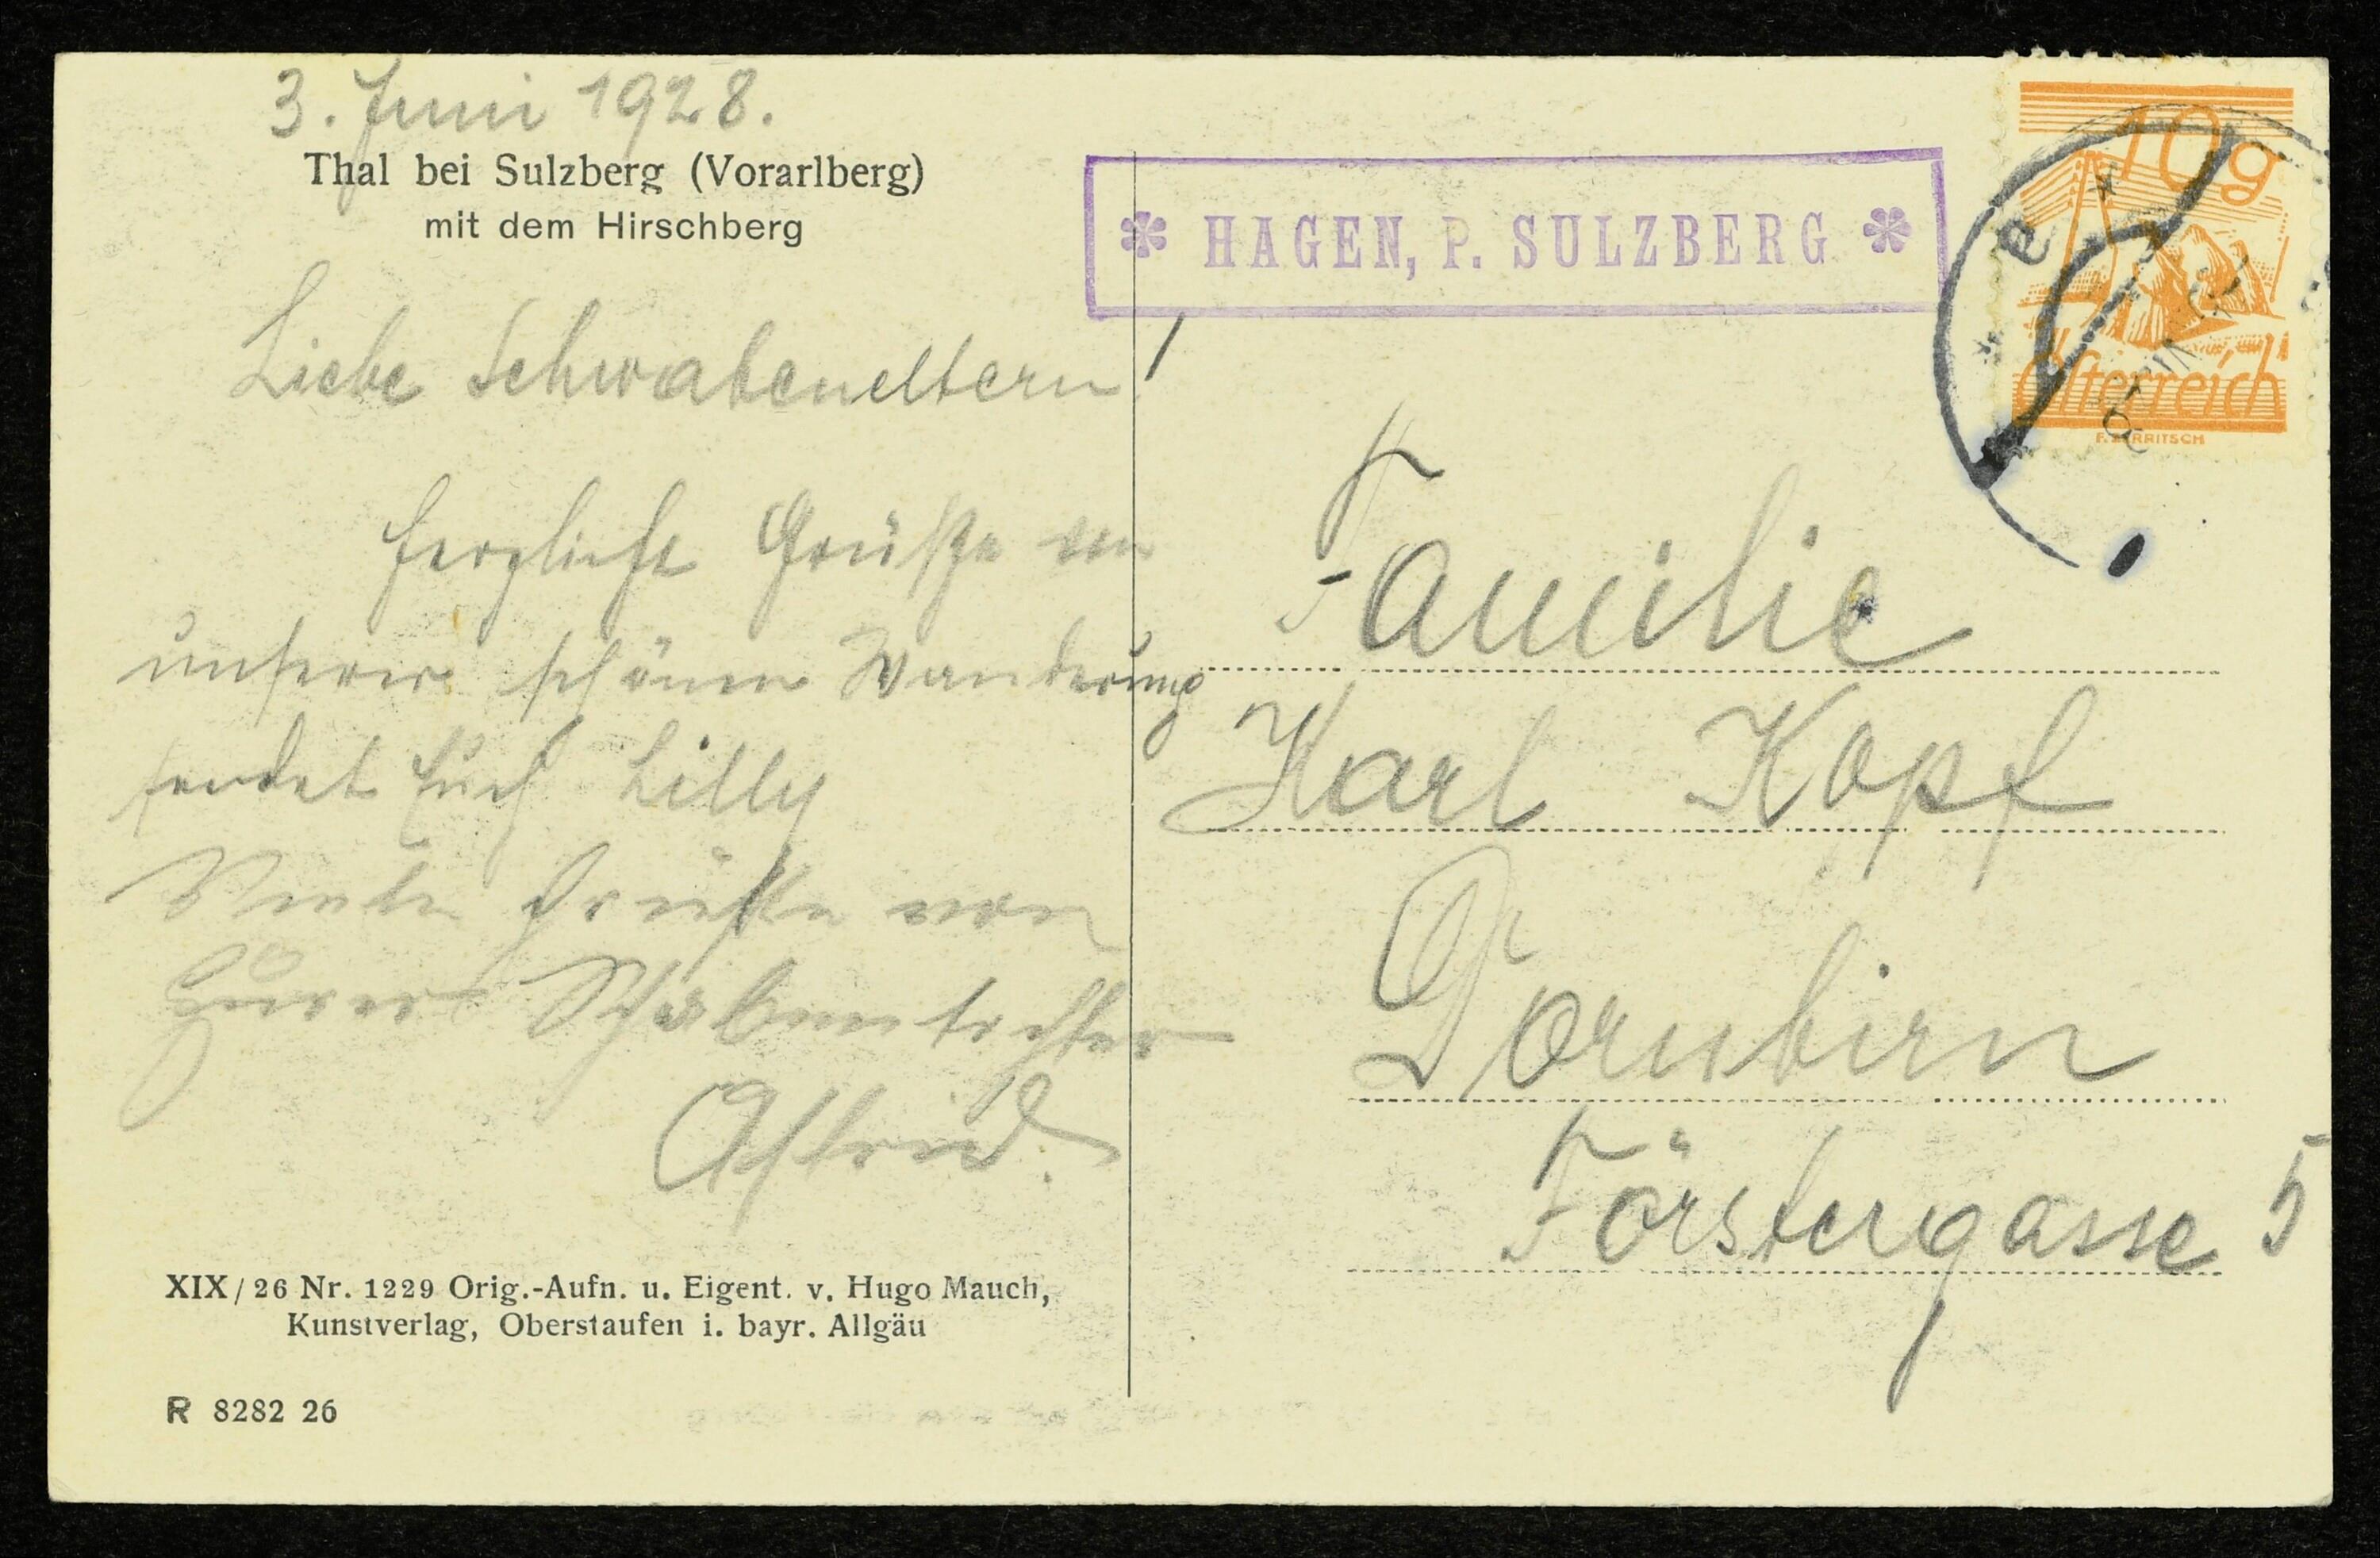 3. Juni 1928.
Thal bei Sulzberg (Vorarlberg)
mit dem Hirschberg
Liebe Schwabeneltern!
Herzliche Grüße von
unserer schönen Wanderung
sendet Euch Lilly
Viele Grüße von
Eurer Schwabentochter
Astrid.
XIX/26 Nr. 1229 Orig.-Aufn. u. Eigent. v. Hugo Mauch,
Kunstverlag, Oberstaufen i. bayr. Allgäu
R 8282 26
* HAGEN, P. SULZBERG *
10g
Österreich
Familie
Karl Kopf
Dornbirn
Förstergasse 5